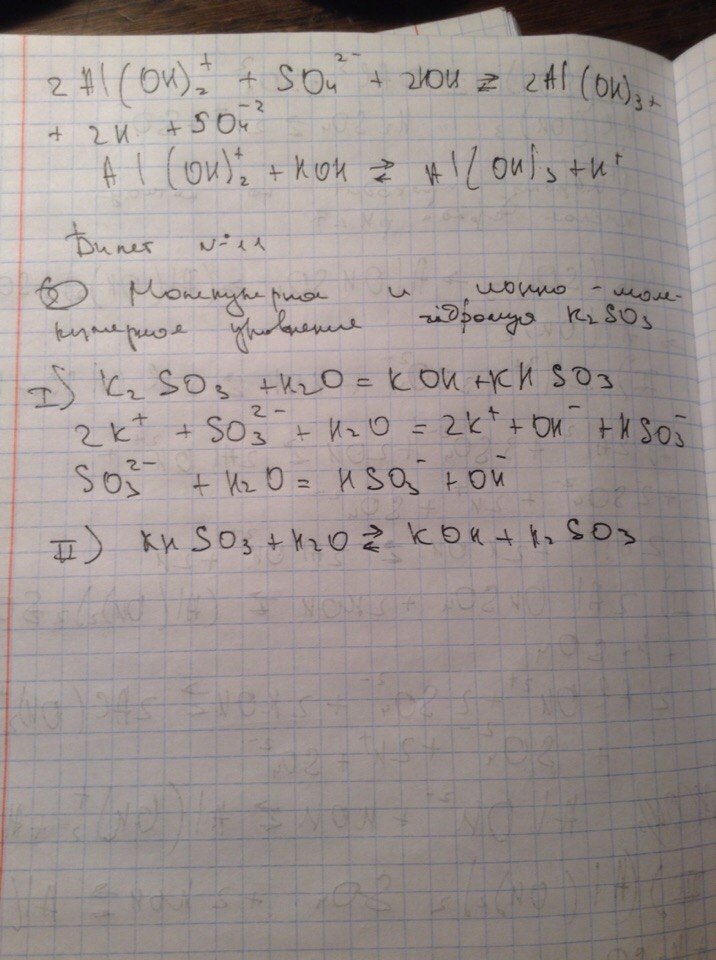 2Al(OH)₂⁺ + SO₄²⁻ + 2HOH ⇄ 2Al(OH)₃ +
+ 2H + SO₄⁻²
Al(OH)₂⁺ + HOH ⇄ Al(OH)₃ + H⁺
Билет №11
6 Молекулярное и ионно-моле-
кулярное уравнение гидролиза K₂SO₃
I) K₂SO₃ + H₂O = KOH + KHSO₃
2K⁺ + SO₃²⁻ + H₂O = 2K⁺ + OH⁻ + HSO₃⁻
SO₃²⁻ + H₂O = HSO₃⁻ + OH⁻
II) KHSO₃ + H₂O ⇄ KOH + H₂SO₃